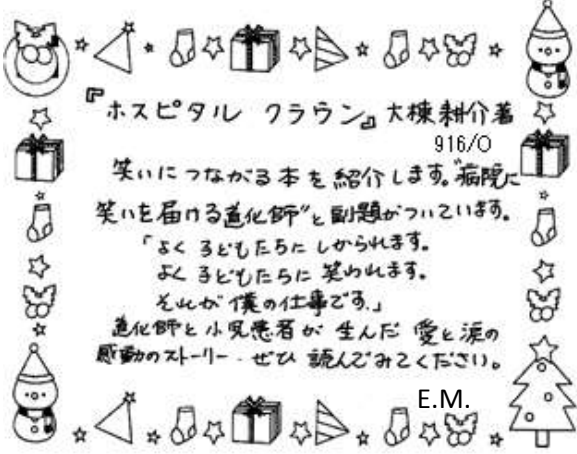 『ホスピタル クラウン』大棟耕介著
916/O
笑いにつながる本を紹介します。"病院に
笑いを届ける道化師"と副題がついています。
「よく子どもたちにしかられます。
よく子どもたちに笑われます。
それが僕の仕事です。」
道化師と小児患者が生んだ愛と涙の
感動のストーリー．ぜひ読んでみてください。
E.M.